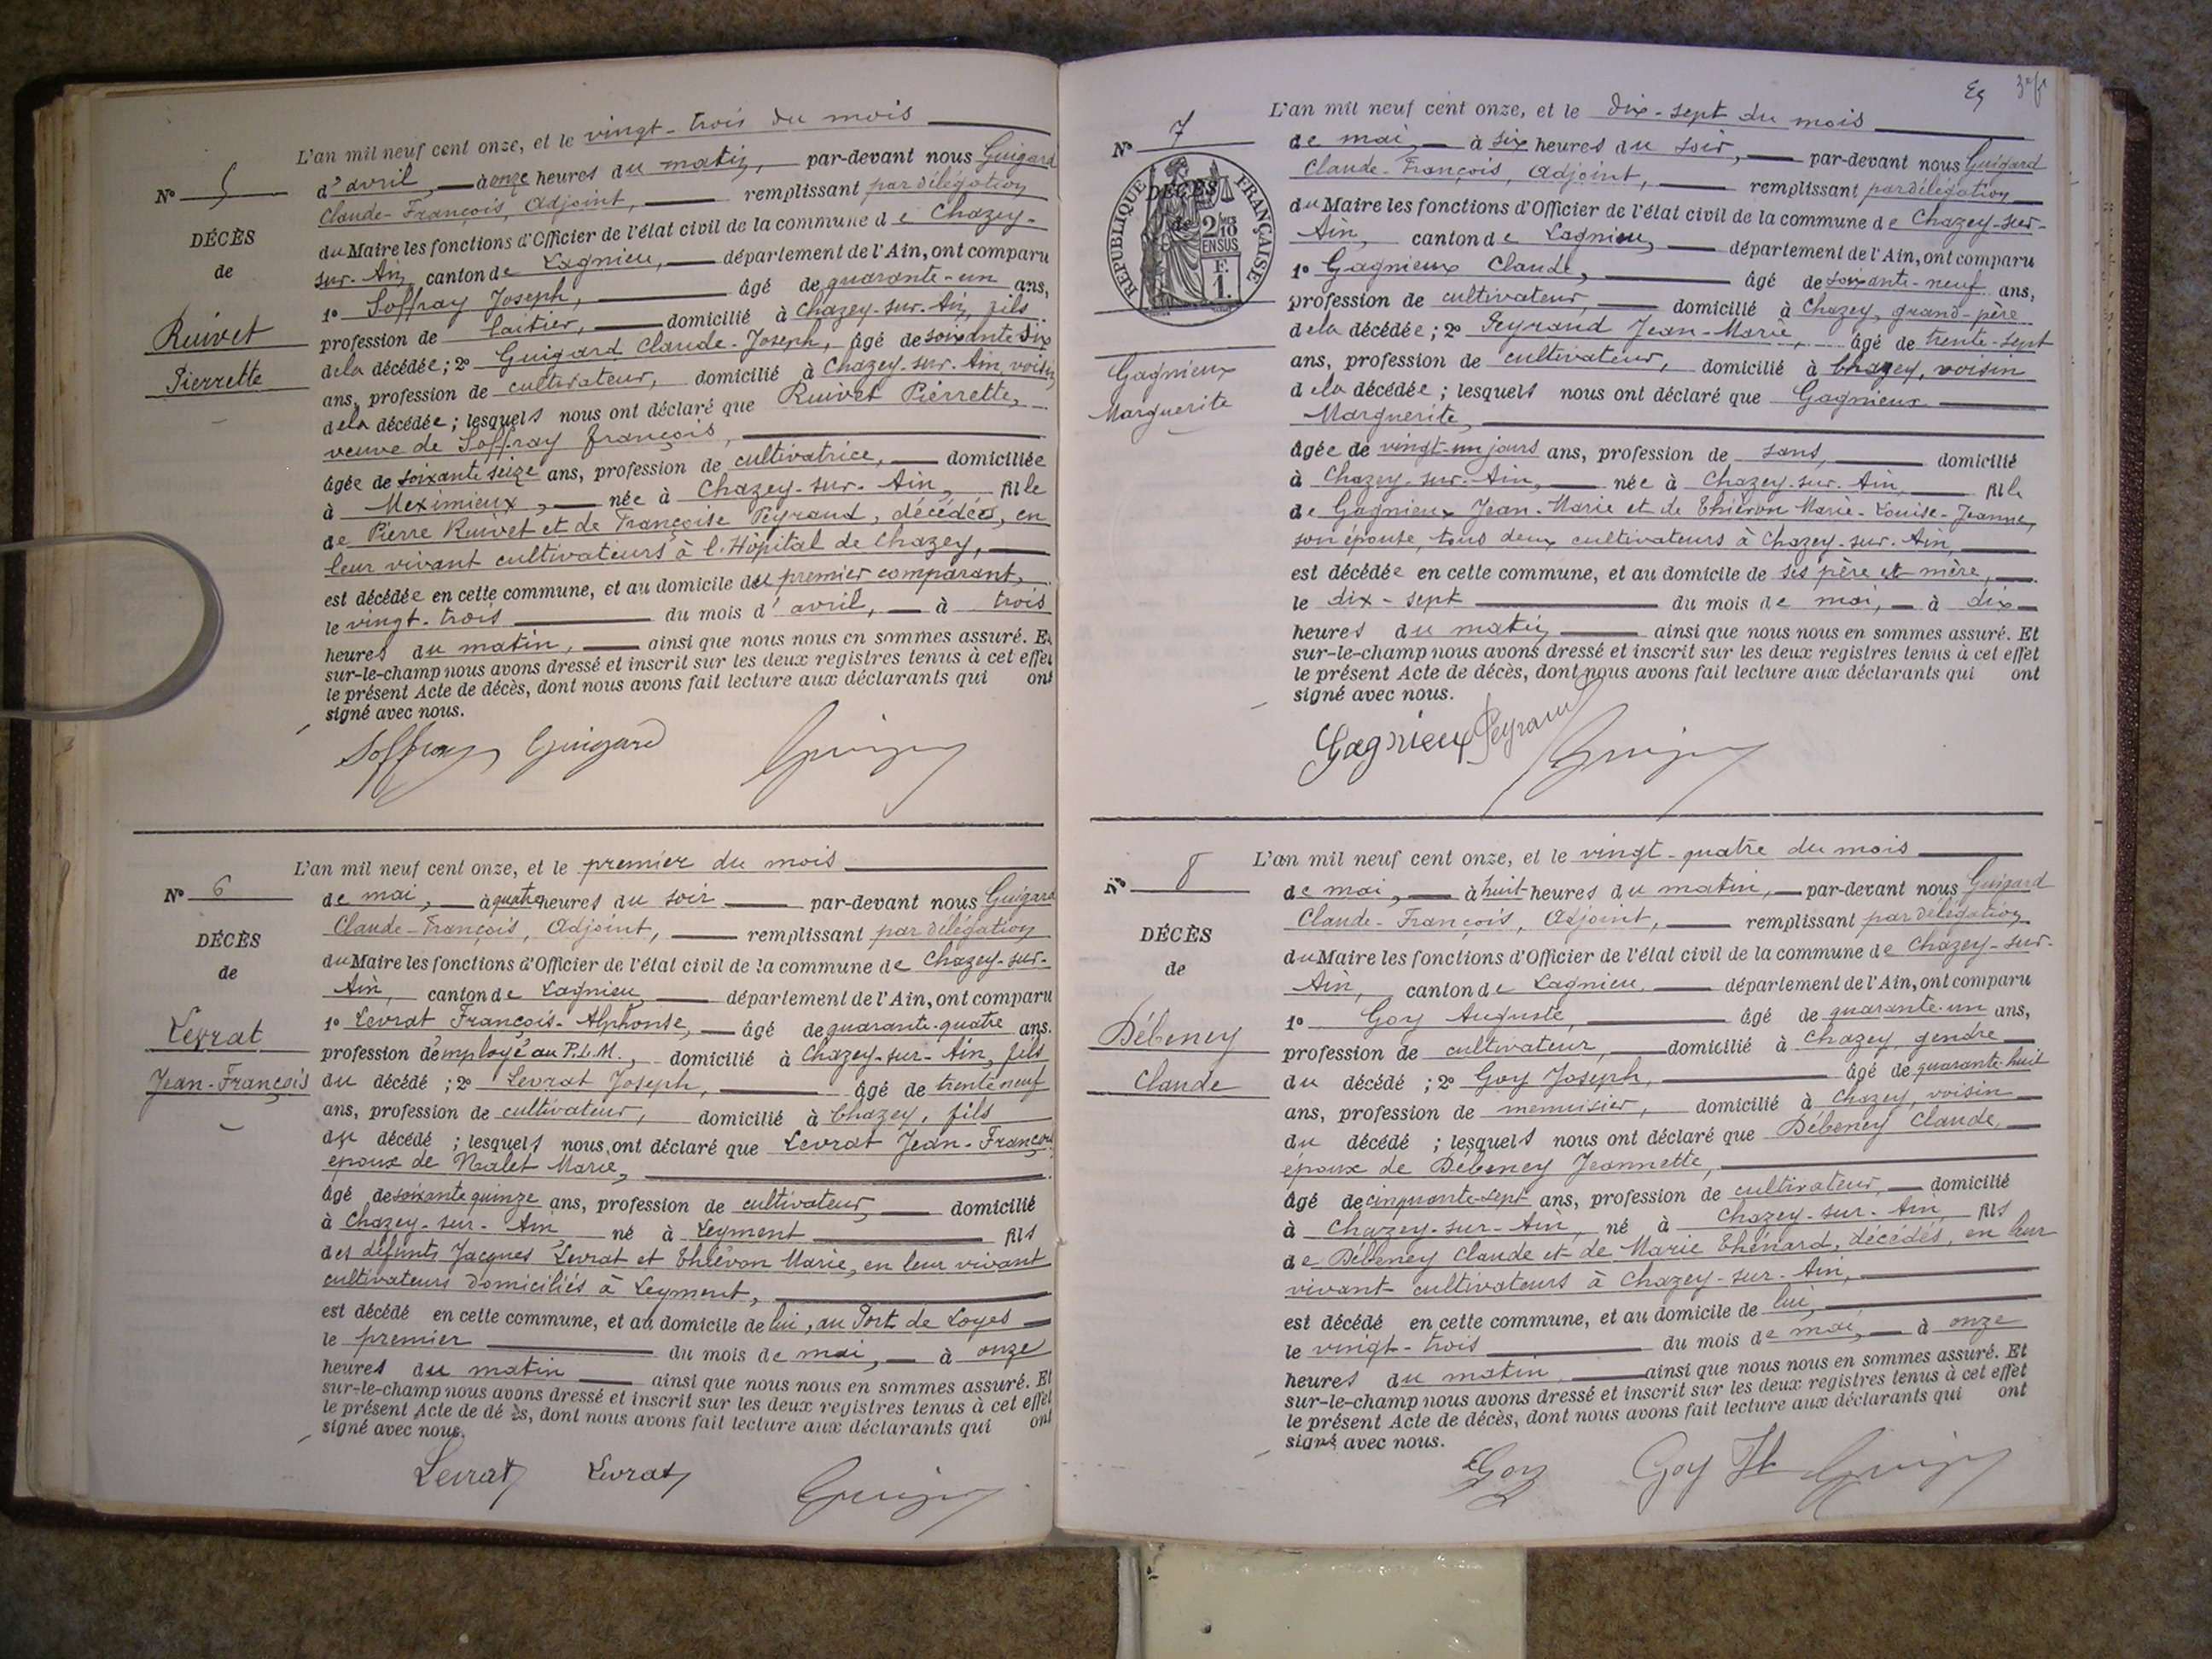 L'an mil neuf cent onze, et le vingt-trois du mois
N° 5
d'avril, à onze heures du matin, par-devant nous Guigard
Claude-François, Adjoint, remplissant par délégation
DÉCÈS
du Maire les fonctions d'Officier de l'état civil de la commune de Chazey-
de
sur-Ain, canton de Lagnieu, département de l'Ain, ont comparu
1° Soffray Joseph, âgé de quarante-un ans,
Ruivet
profession de laitier, domicilié à Chazey-sur-Ain, fils
Pierrette
de la décédée; 2° Guigard Claude-Joseph, âgé de soixante dix
ans, profession de cultivateur, domicilié à Chazey-sur-Ain, voisin
de la décédée; lesquels nous ont déclaré que Ruivet Pierrette,
veuve de Soffray François,
âgée de soixante seize ans, profession de cultivatrice, domiciliée
à Meximieux, née à Chazey-sur-Ain, fille
de Pierre Ruivet et de Françoise Peyraud, décédés, en
leur vivant cultivateurs à l'Hôpital de Chazey,
est décédée en cette commune, et au domicile du premier comparant,
le vingt-trois du mois d'avril, à trois
heures du matin, ainsi que nous nous en sommes assuré. Et
sur-le-champ nous avons dressé et inscrit sur les deux registres tenus à cet effet
le présent Acte de décès, dont nous avons fait lecture aux déclarants qui ont
signé avec nous.
Soffray Guigard
L'an mil neuf cent onze, et le premier du mois
N° 6
de mai, à quatre heures du soir par-devant nous Guigard
Claude-François, Adjoint, remplissant par délégation
DÉCÈS
du Maire les fonctions d'Officier de l'état civil de la commune de Chazey-sur-
de
Ain, canton de Lagnieu, département de l'Ain, ont comparu
Levrat
1° Levrat François-Alphonse, âgé de quarante-quatre ans.
profession d'employé au P.L.M., domicilié à Chazey-sur-Ain, fils
Jean-François
du décédé; 2° Levrat Joseph, âgé de trente neuf
ans, profession de cultivateur, domicilié à Chazey, fils
du décédé; lesquels nous ont déclaré que Levrat Jean-François
époux de Nalet Marie,
âgé de soixante quinze ans, profession de cultivateur, domicilié
à Chazey-sur-Ain né à Leyment fils
des défunts Jacques Levrat et Thiévon Marie, en leur vivant
cultivateurs domiciliés à Leyment,
est décédé en cette commune, et au domicile de lui, au Port de Loyes
le premier du mois de mai, à onze
heures du matin ainsi que nous nous en sommes assuré. Et
sur-le-champ nous avons dressé et inscrit sur les deux registres tenus à cet effet
le présent Acte de dé ès, dont nous avons fait lecture aux déclarants qui ont
signé avec nous.
Levrat Levrat
L'an mil neuf cent onze, et le dix-sept du mois
N° 7
de mai, à six heures du soir, par-devant nous Guigard
Claude-François, Adjoint, remplissant par délégation
RÉPUBLIQUE FRANÇAISE
DÉCÈS
de
2/10 EN SUS
F. 1.
du Maire les fonctions d'Officier de l'état civil de la commune de Chazey-sur-
Ain, canton de Lagnieu, département de l'Ain, ont comparu
1° Gagnieux Claude, âgé de soixante-neuf ans,
profession de cultivateur, domicilié à Chazey, grand-père
Gagnieux
de la décédée; 2° Peyraud Jean-Marie, âgé de trente-sept
Marguerite
ans, profession de cultivateur, domicilié à Chazey, voisin
de la décédée; lesquels nous ont déclaré que Gagnieux
Marguerite,
âgée de vingt-un jours ans, profession de sans, domicilié
à Chazey-sur-Ain, née à Chazey-sur-Ain, fille
de Gagnieux Jean-Marie et de Thiévon Marie-Louise-Jeanne,
son épouse, tous deux cultivateurs à Chazey-sur-Ain,
est décédée en cette commune, et au domicile de ses père et mère,
le dix-sept du mois de mai, à dix
heures du matin ainsi que nous nous en sommes assuré. Et
sur-le-champ nous avons dressé et inscrit sur les deux registres tenus à cet effet
le présent Acte de décès, dont nous avons fait lecture aux déclarants qui ont
signé avec nous.
Gagnieux Peyraud
L'an mil neuf cent onze, et le vingt-quatre du mois
N° 8
de mai, à huit heures du matin, par-devant nous Guigard
Claude-François, Adjoint, remplissant par délégation
DÉCÈS
du Maire les fonctions d'Officier de l'état civil de la commune de Chazey-sur-
de
Ain, canton de Lagnieu, département de l'Ain, ont comparu
1° Goy Auguste, âgé de quarante-un ans,
Débeney
profession de cultivateur, domicilié à Chazey, gendre
Claude
du décédé; 2° Goy Joseph, âgé de quarante-huit
ans, profession de menuisier, domicilié à Chazey, voisin
du décédé; lesquels nous ont déclaré que Débeney Claude,
époux de Débeney Jeannette,
âgé de cinquante-sept ans, profession de cultivateur, domicilié
à Chazey-sur-Ain, né à Chazey-sur-Ain, fils
de Débeney Claude et de Marie Thénard, décédés, en leur
vivant cultivateurs à Chazey-sur-Ain,
est décédé en cette commune, et au domicile de lui,
le vingt-trois du mois de mai, à onze
heures du matin, ainsi que nous nous en sommes assuré. Et
sur-le-champ nous avons dressé et inscrit sur les deux registres tenus à cet effet
le présent Acte de décès, dont nous avons fait lecture aux déclarants qui ont
signé avec nous.
Goy Goy Jh